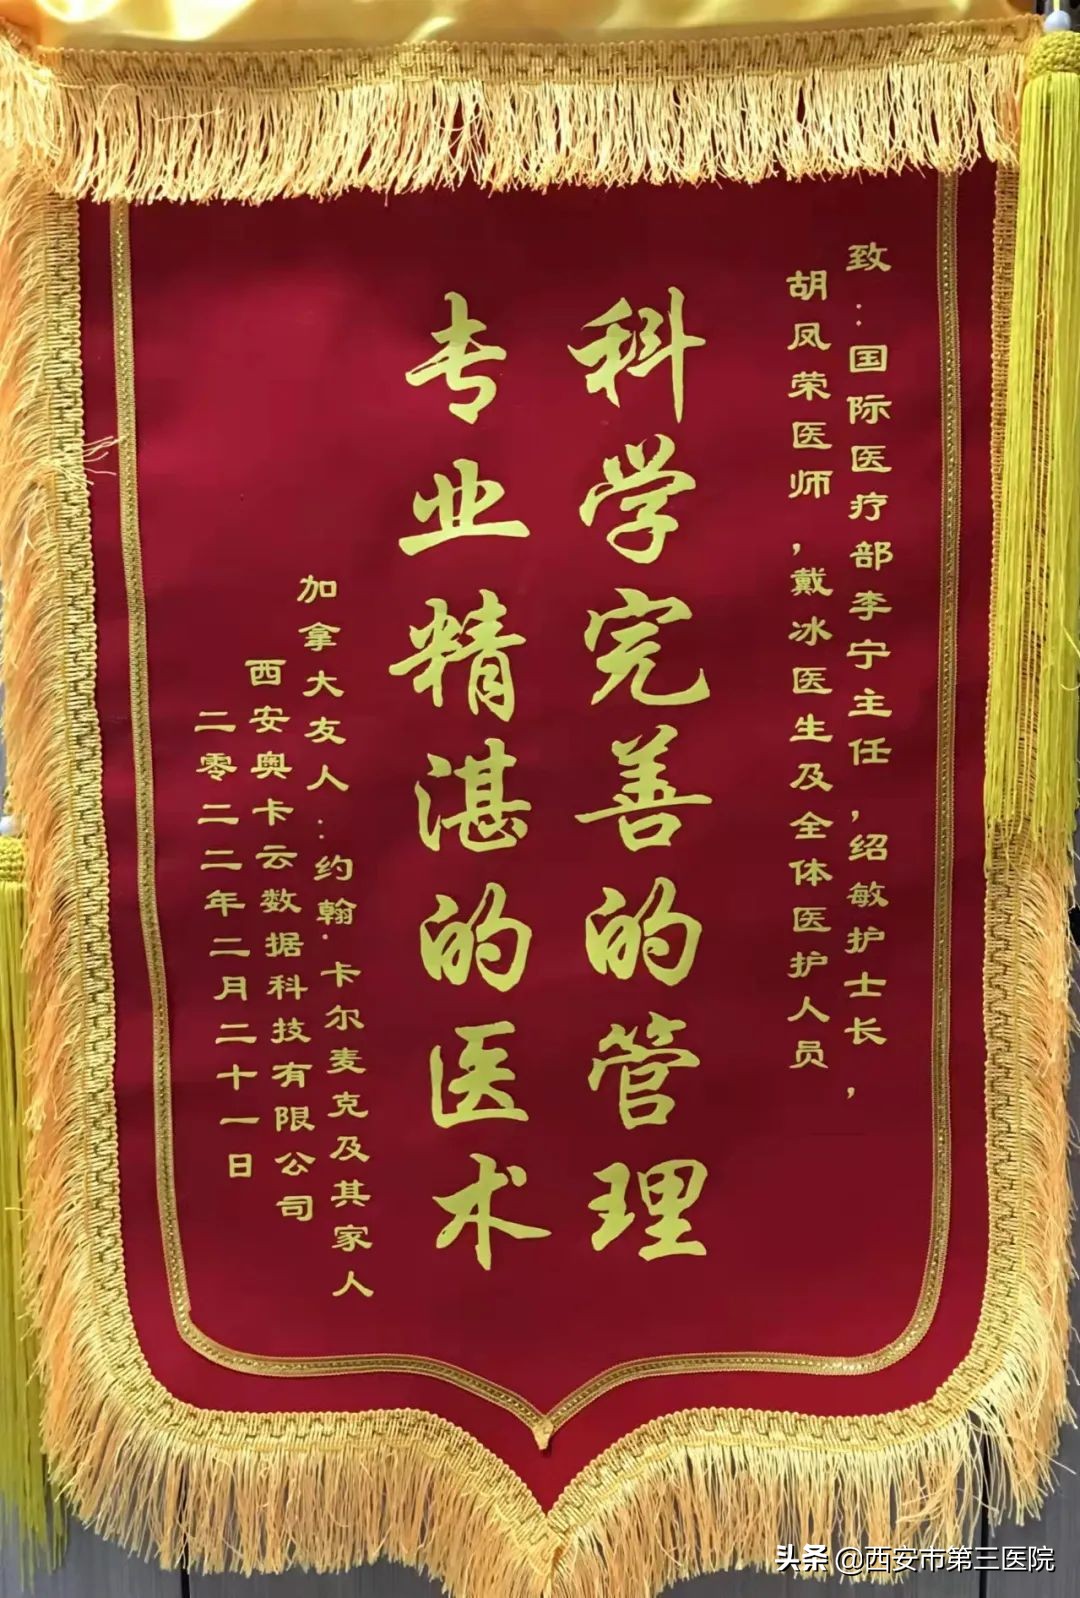 致:国际医疗部李宁主任,绍敏护士长,
胡凤荣医师,戴冰医生及全体医护人员
科学完善的管理
专业精湛的医术
加拿大友人:约翰·卡尔麦克及其家人
西安奥卡云数据科技有限公司
二零二二年二月二十一日
头条 @西安市第三医院